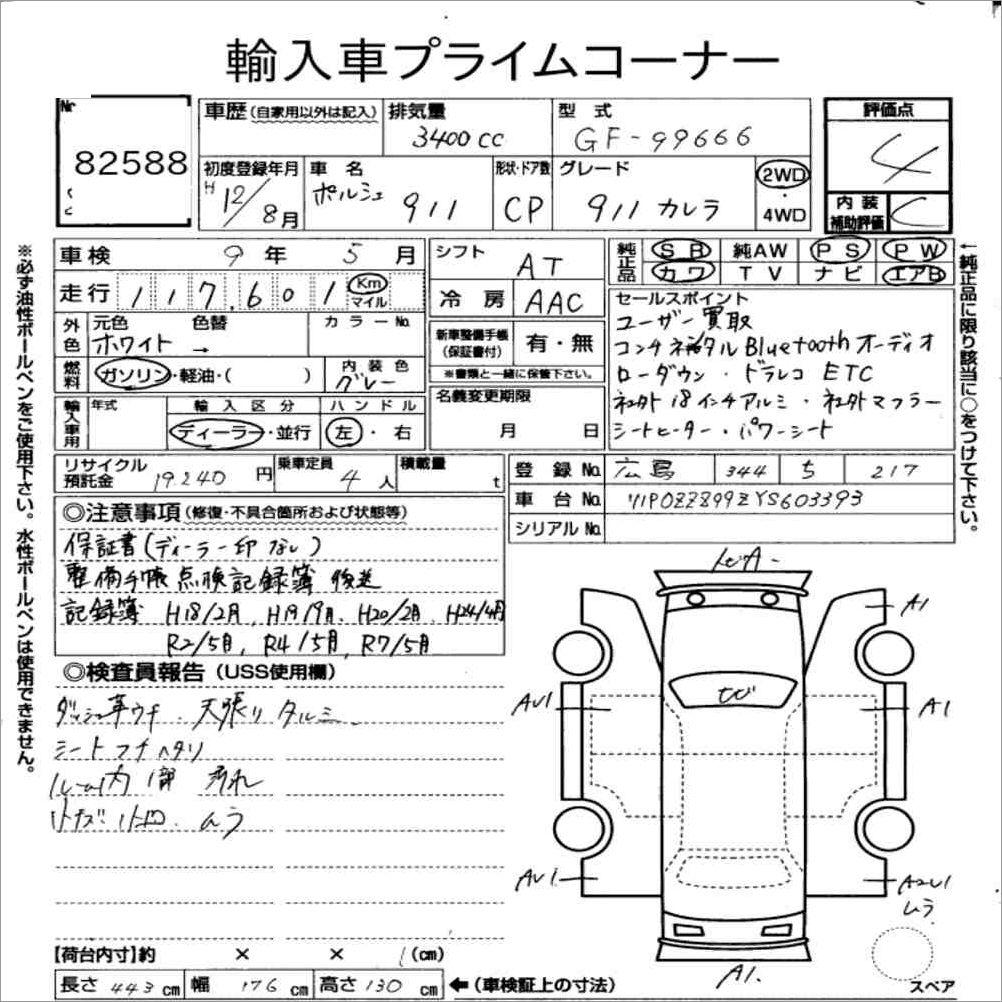 輸入車プライムコーナー
Nr
82588
車歴(自家用以外は記入)
排気量
3400 cc
型式
GF-99666
評価点
4
初度登録年月
H 12/8月
車名
ポルシェ 911
形状・ドア数
CP
グレード
911 カレラ
2WD
・
4WD
内装
補助評価
C
車検 9年 5月
走行 117,601 Km
マイル
シフト
AT
冷房 AAC
純正品
SB 純AW PS PW
カワ TV ナビ エアB
外色
元色 色替 カラーNo.
ホワイト →
燃料
ガソリン・軽油・( )
内装色
グレー
新車整備手帳
(保証書付)
有・無
※書類と一緒に保管下さい。
セールスポイント
ユーザー買取
Bluetoothオーディオ
ローダウン・ドラレコ ETC
社外18インチアルミ・社外マフラー
シートヒーター・パワーシート
輸入車用
年式
輸入区分
ディーラー・並行
ハンドル
左・右
名義変更期限
月 日
リサイクル
預託金
19240円
乗車定員
4人
積載量
t
登録No. 広島 344 ち 217
車台No. WP0ZZZ99ZYS603393
シリアルNo.
◎注意事項(修復・不具合箇所および状態等)
保証書(ディーラー印なし)
整備手帳 点検記録簿 後送
記録簿 H18/2月、H19/9月、H20/2月、H24/4月
R2/5月、R4/5月、R7/5月
◎検査員報告(USS使用欄)
ダッシュ革ウキ、天張りタルミ
シートフチヘタリ
ルーム内 1部 汚れ
ムラ
A1
AU1
A1
AU1
A2U1
ムラ
A1.
スペア
【荷台内寸】約 × × (cm)
長さ 443 cm 幅 176 cm 高さ 130 cm ←(車検証上の寸法)
※必ず油性ボールペンをご使用下さい。水性ボールペンは使用できません。
←純正品に限り該当に○をつけて下さい。